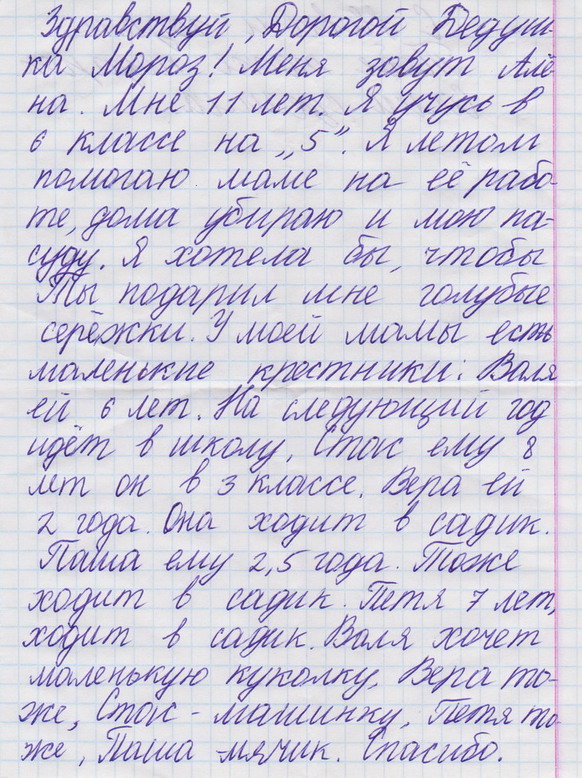 Здравствуй, Дорогой Дедуш-
ка Мороз! Меня зовут Алё-
на. Мне 11 лет. Я учусь в
6 классе на „5“. Я летом
помогаю маме на её рабо-
те, дома убираю и мою па-
суду. Я хотела бы, чтобы
Ты подарил мне голубые
серёжки. У моей мамы есть
маленькие крестники: Валя
ей 6 лет. На следующий год
идёт в школу, Стас ему 8
лет он в 3 классе. Вера ей
2 года. Она ходит в садик.
Паша ему 2,5 года. Тоже
ходит в садик. Петя 7 лет,
ходит в садик. Валя хочет
маленькую куколку, Вера то-
же, Стас - машинку, Петя то-
же, Паша - мячик. Спасибо.